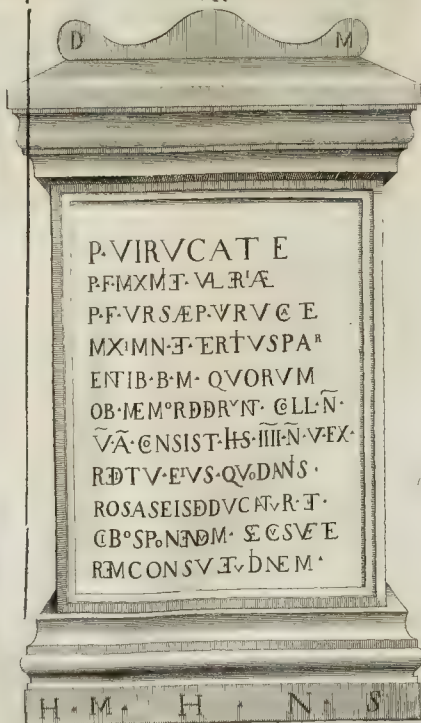 D M
P·VIRVCATE
P·F·MXMET·VLERIÆ
P·F·VRSÆP·VIRVCTE
MXIMN·ET·ERTVSPAR
ENTIB·B·M·QVORVM
OB·MEMORDDRVNT·COLL·N·
V·A·CNSIST·HS·IIII·N·V·EX·
REDTV·EIVS·QVODANIS·
ROSASEISDDVCATVR·ET·
CIBOSPONENDM·SECSVETE
REMCONSVETVDNEM·
H·M·H·N·S